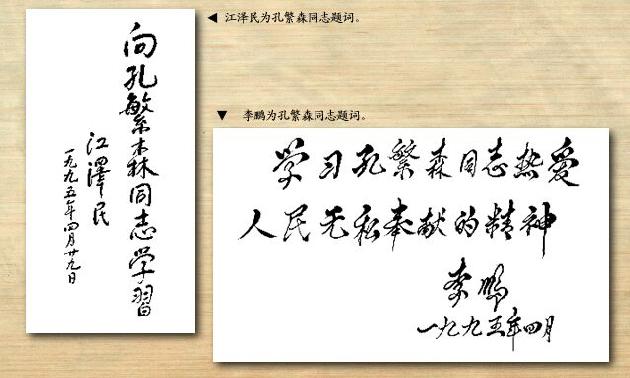 ◀ 江泽民为孔繁森同志题词。
向孔繁森同志学習
江澤民
一九九五年四月廿九日
▼ 李鹏为孔繁森同志题词。
学习孔繁森同志热爱
人民无私奉献的精神
李鹏
一九九五年四月